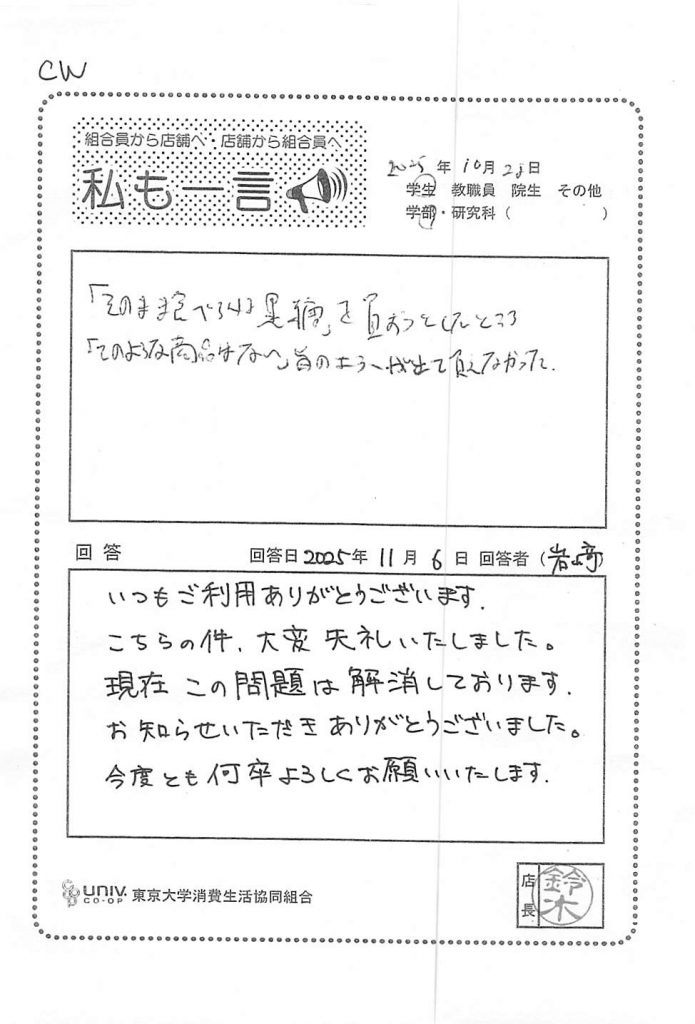 CW
組合員から店舗へ・店舗から組合員へ
私も一言
2025年10月28日
学生 教職員 院生 その他
学部・研究科( )
「そのまま食べる黒糖」を買おうとしたところ
「そのような商品はない」旨のエラーが出て買えなかった.
回答 回答日 2025年 11月 6日 回答者(岩﨑)
いつもご利用ありがとうございます.
こちらの件、大変失礼いたしました。
現在この問題は解消しております.
お知らせいただきありがとうございました。
今度とも何卒よろしくお願いいたします.
UNIV. CO-OP 東京大学消費生活協同組合
店長 鈴木